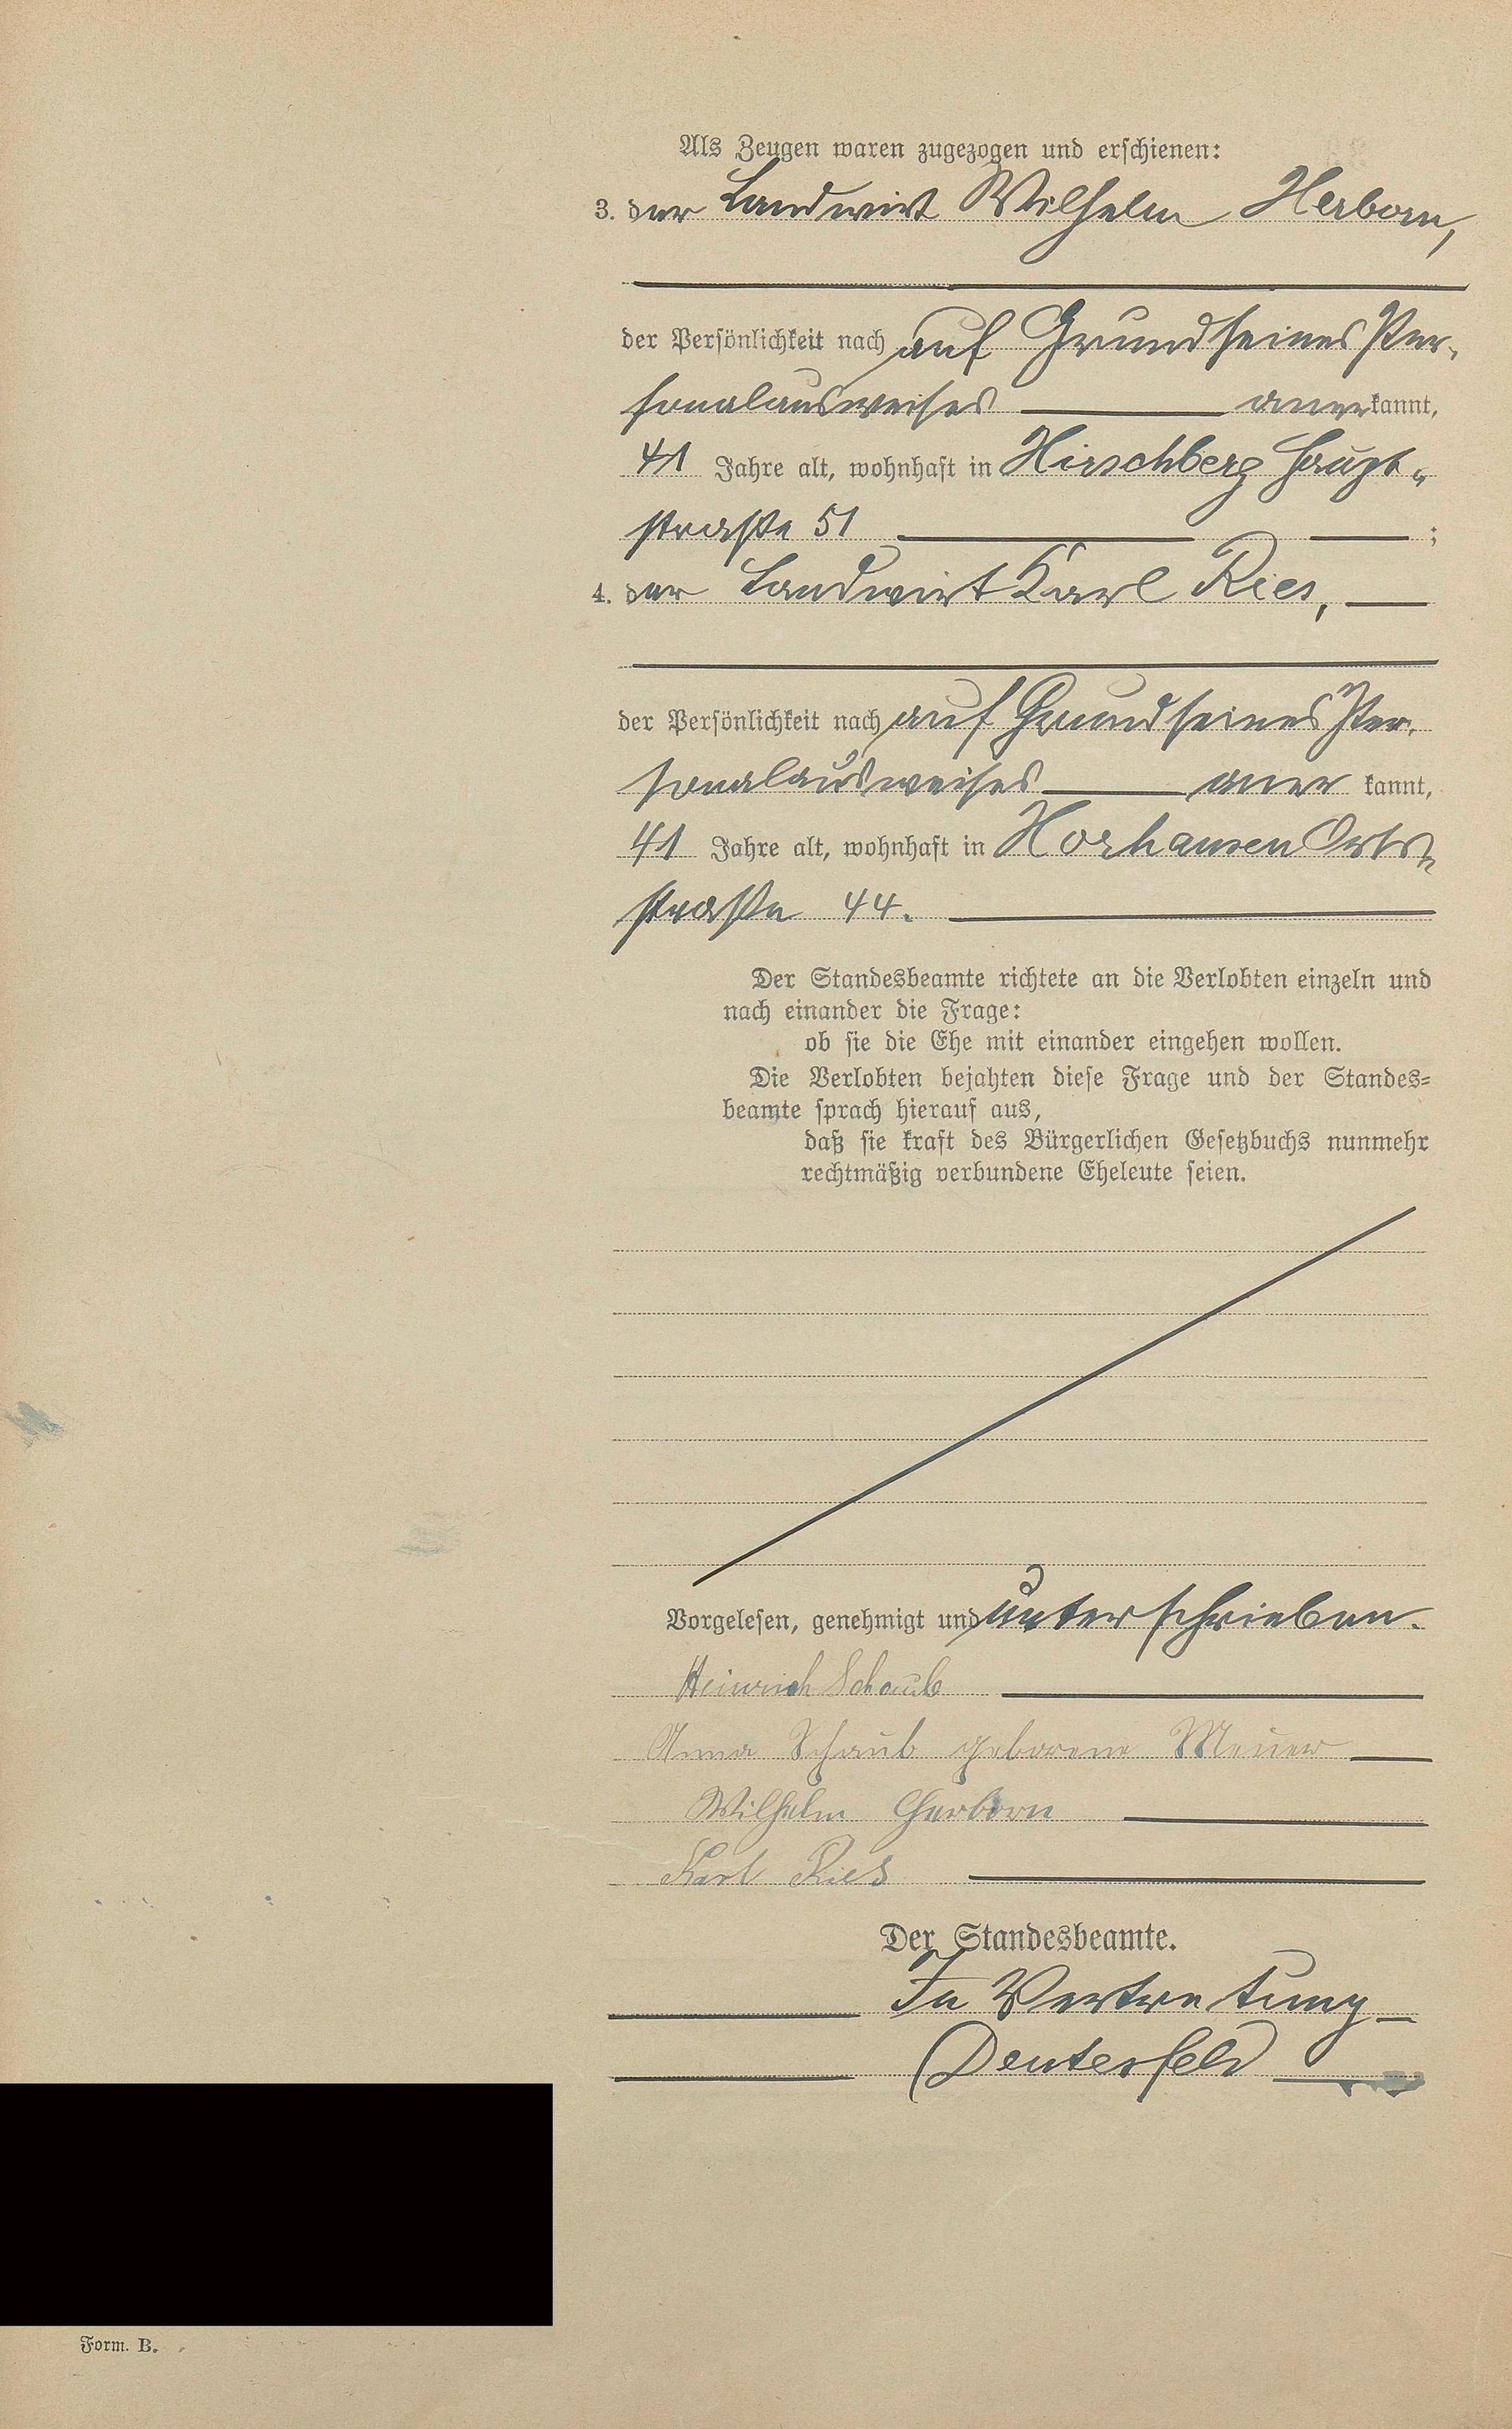 Als Zeugen waren zugezogen und erschienen:
3. der Landwirt Wilhelm Herborn,
der Persönlichkeit nach auf Grund seines Per-
sonalausweises anerkannt,
41 Jahre alt, wohnhaft in Hirschberg Haupt-
straße 51 ;
4. der Landwirt Karl Ries,
der Persönlichkeit nach auf Grund seines Per-
sonalausweises anerkannt,
41 Jahre alt, wohnhaft in Horhausen Orts-
straße 44.
Der Standesbeamte richtete an die Verlobten einzeln und
nach einander die Frage:
ob sie die Ehe mit einander eingehen wollen.
Die Verlobten bejahten diese Frage und der Standes-
beamte sprach hierauf aus,
daß sie kraft des Bürgerlichen Gesetzbuchs nunmehr
rechtmäßig verbundene Eheleute seien.
Vorgelesen, genehmigt und unterschrieben.
Heinrich Schaub
Anna Schaub geborene Meuer
Wilhelm Herborn
Karl Ries
Der Standesbeamte.
In Vertretung
Deuterfeld
Form. B.